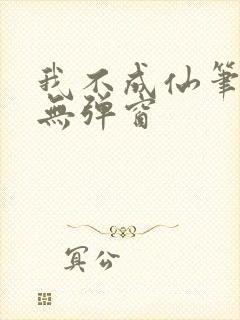 我不成仙筆
無彈窗
冥公